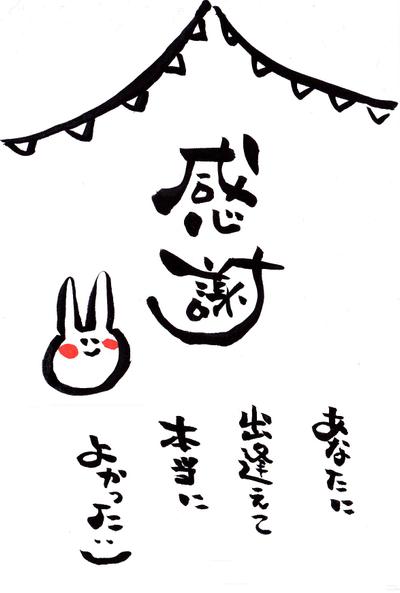 感謝
あなたに
出逢えて
本当に
よかった